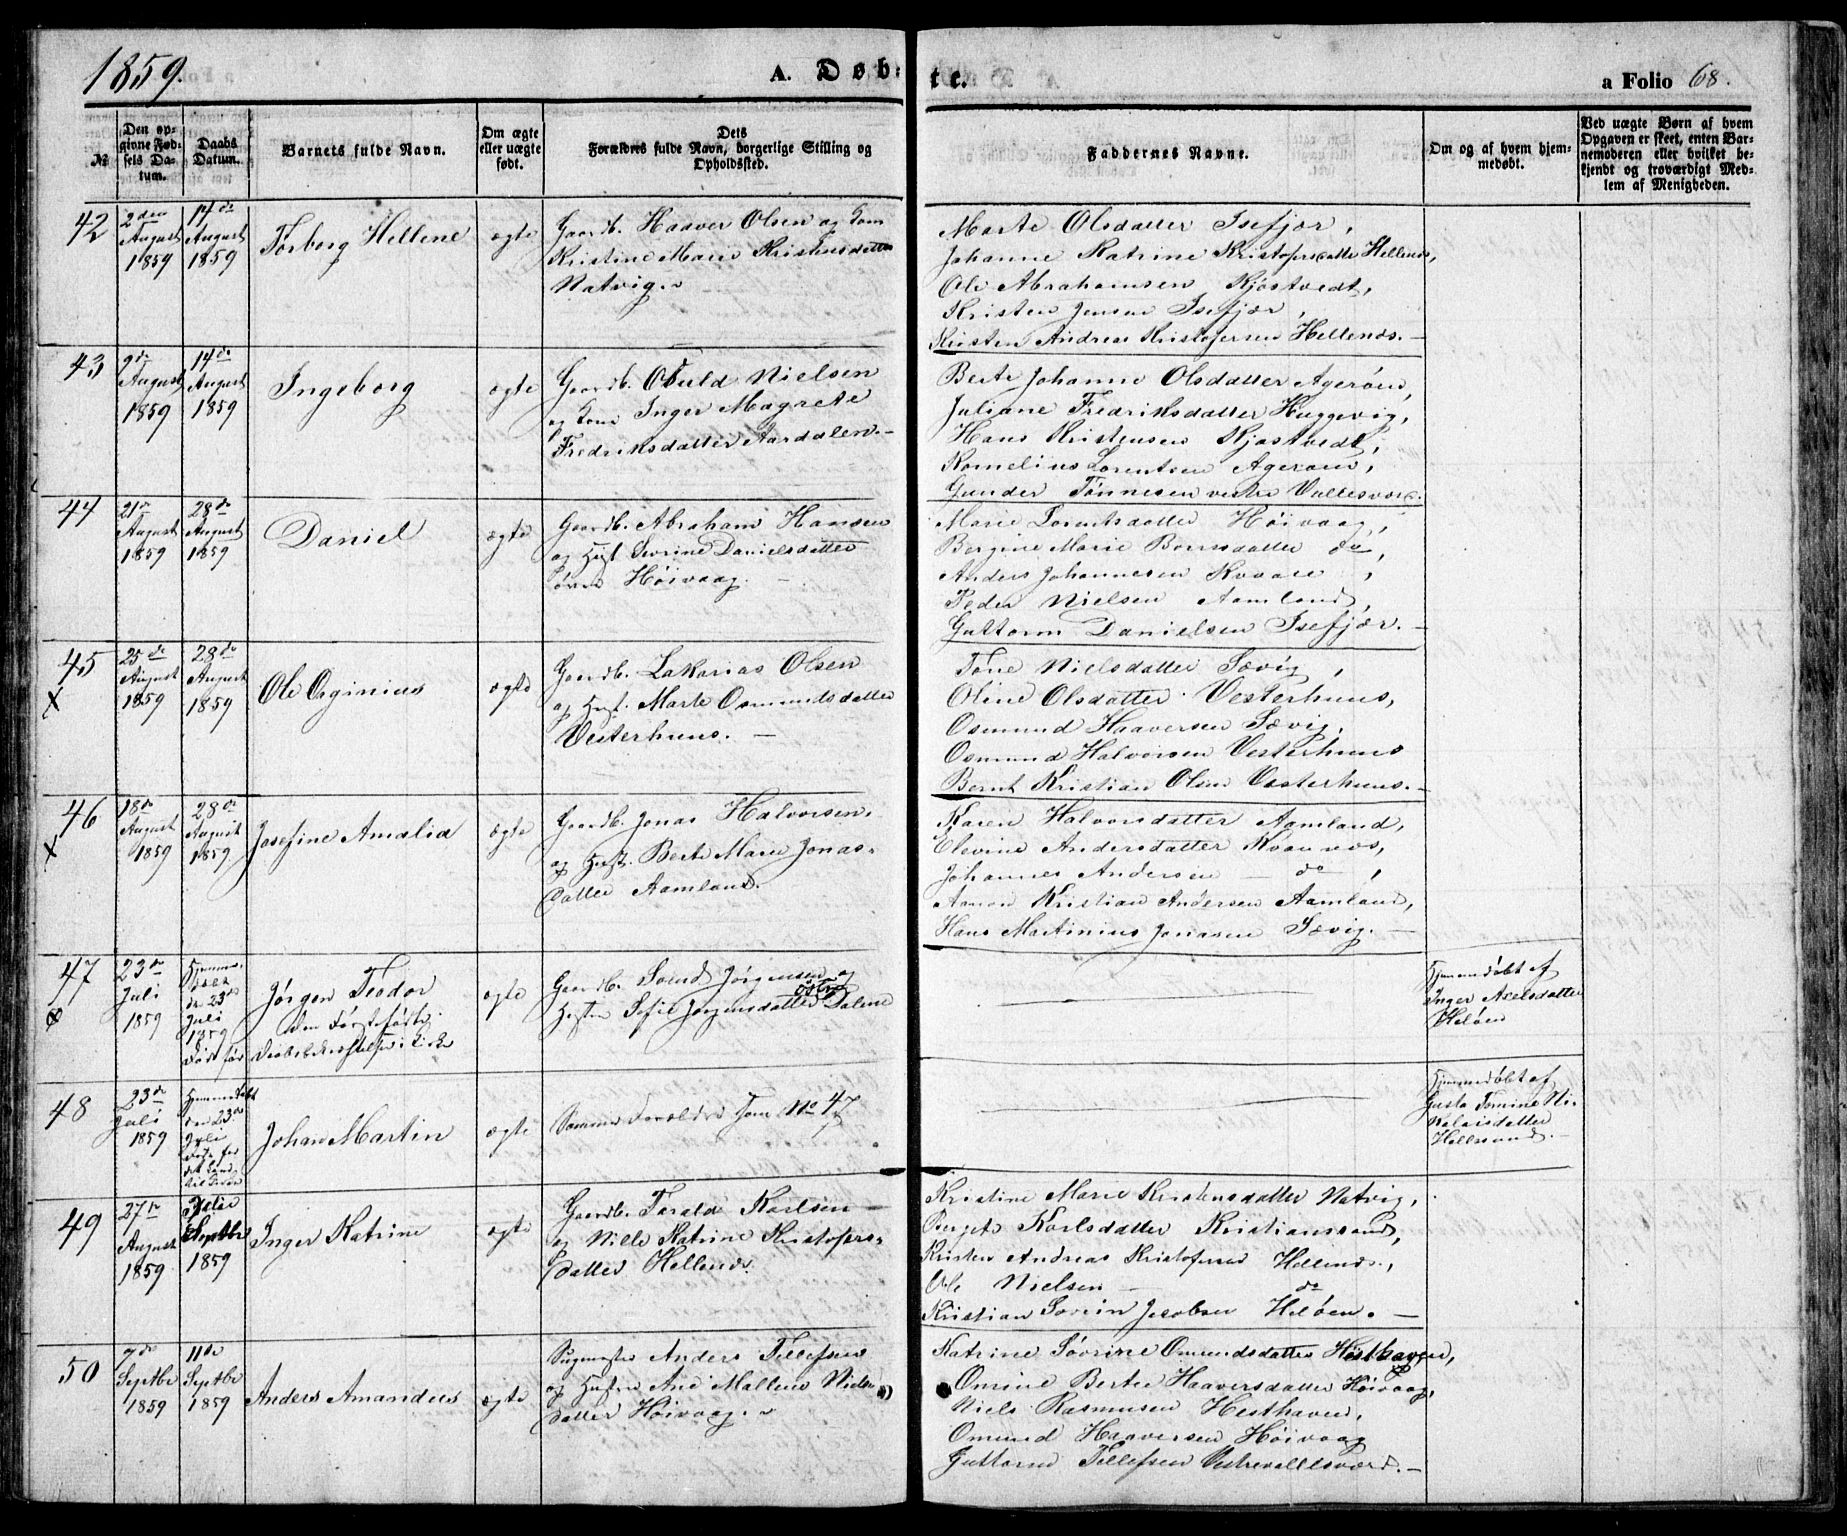 1859.
A. Døbte.
a Folio 68.
№
Den opgivne Fødsels Datum.
Daabs Datum.
Barnets fulde Navn.
Om ægte eller uægte født.
Dets Forældres fulde Navn, borgerlige Stilling og Opholdssted.
Faddernes Navne.
Om og af hvem hjemmedøbt.
Ved uægte Børn af hvem Opgaven er skeet, enten Barnemoderen eller hvilket bekjendt og troværdigt Medlem af Menigheden.
42
2den August 1859
14de August 1859
Torborg Hellene
ægte
Gaardb. Haaver Olsen og Kone
Kristine Marie Kristensdatter
Natvig.
Marte Olsdatter Isefjær,
Johanne Katrine Kristofersdatter Hellends,
Ole Abrahamsen Kjøstvedt,
Kristen Jensen Isefjær,
Kristen Andreas Kristofersen Hellends.
43
9de August 1859
14de August 1859
Ingeborg
ægte
Gaardb. Osuld Nielsen
og Kone Inger Magrete
Fredriksdatter Aardalen.
Berte Johanne Olsdatter Agerøen,
Juliane Fredriksdatter Huggevig,
Hans Kristensen Kjøstvedt,
Kornelius Lorentsen Agerøen,
Gunder Tønnesen vestre Vallesværd.
44
21de August 1859
28de August 1859
Daniel
ægte
Gaardb. Abraham Hansen
og Hust. Sevrine Danielsdatter
Høivaag.
Marie Lorentsdatter Høivaag,
Bergine Marie Berntsdatter do,
Anders Johannesen Kvaase,
Peder Nielsen Aamland,
Guttorm Danielsen Isefjær.
45
x
25de August 1859
28de August 1859
Ole Osginius
ægte
Gaardb. Zakarias Olsen
og Hust. Marte Osmundsdatter
Vesterhuus.
Tone Nielsdatter Sævig,
Oline Olsdatter Vesterhuus,
Osmund Haaversen Sævig,
Osmund Halvorsen Vesterhuus
Bernt Kristian Olsen Vesterhuus.
46
x
18de August 1859
28de August 1859
Josefine Amalia
ægte
Gaardb. Jonas Halvorsen
og Hust. Berte Marie Jonas-
datter Aamland.
Karen Halvorsdatter Aamland,
Elevine Andersdatter Kvannes,
Johannes Andersen do,
Aanon Kristian Andersen Aamland,
Hans Martinius Jonasen Sævig.
47
23de Juli 1859
Hjemmedøbt
d. 23de
Juli
1859
Død før
Jørgen Teodor
den Førstefødte.
ægte
Gaardb. Svend Jørgensen og
Hustru Sofie Jørgensdatter østre Dalene
Hjemmedøbt af
Inger Axelsdatter
Heløen
48
23de Juli 1859
Hjemmedøbt
den 23de
Juli
Døde før
det kand
til Kirken
Johan Martin
ægte
Samme Forældre som No 47
Hjemmedøbt af
Gusta Tomine Ni-
kolaisdatter
Hellesund.
49
27de August 1859
4de Septbr 1859
Inger Katrine
ægte
Gaardb. Torald Karlsen
og Nille Katrine Kristofers-
datter Hellends.
Kristine Marie Kristensdatter Natvig,
Berget Karlsdatter Kristiansand,
Kristen Andreas Kristofersen Hellends,
Ole Nielsen do
Kristian Severin Jacobsen Heløen.
50
7de Septbr 1859
11te Septbr 1859
Anders Amandus
ægte
Anders Tellefsen
og Hustru Ane Mallene Niels-
datter Høivaag.
Katrine Sevrine Omundsdatter Hesthaven,
Omine Berte Haaversdatter Høivaag,
Niels Rasmusen Hesthaven,
Omund Haaversen Høivaag
Guttorm Tellefsen Vestrevallesværd.